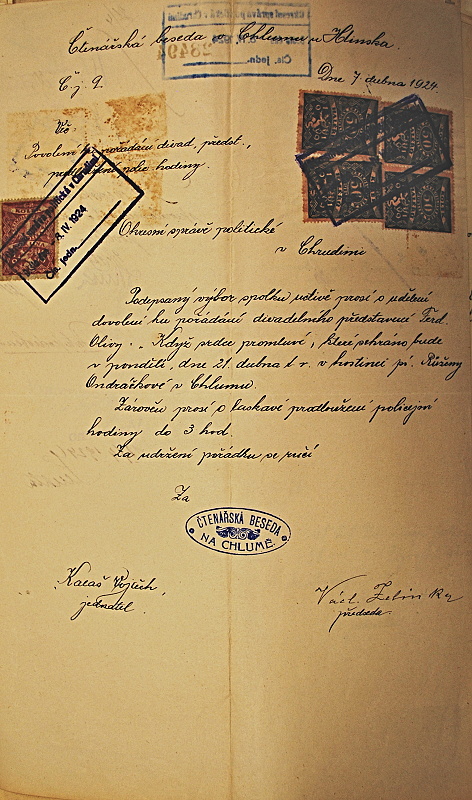 Čtenářská beseda v Chlumu u Hlinska.
Č. j. 9.
Dne 7. dubna 1924.
Věc
Dovolení ku pořádání divad. předst.,
prodloužení polic. hodiny.
IV. 1924
Čís. jedn.
Okresní správě politické
v Chrudimi
Podepsaný výbor spolku uctivě prosí o udělení
dovolení ku pořádání divadelního představení Ferd.
Olivy. „Když srdce promluví, které sehráno bude
v pondělí, dne 21. dubna t. r. v hostinci pí. Růženy
Ondráčkové v Chlumu.
Zárověn prosí o laskavé prodloužení policejní
hodiny do 3 hod.
Za udržení pořádku se ručí
Za
ČTENÁŘSKÁ BESEDA
NA CHLUMĚ.
Kalaš Vojtěch,
jednatel.
Václ.
předseda.